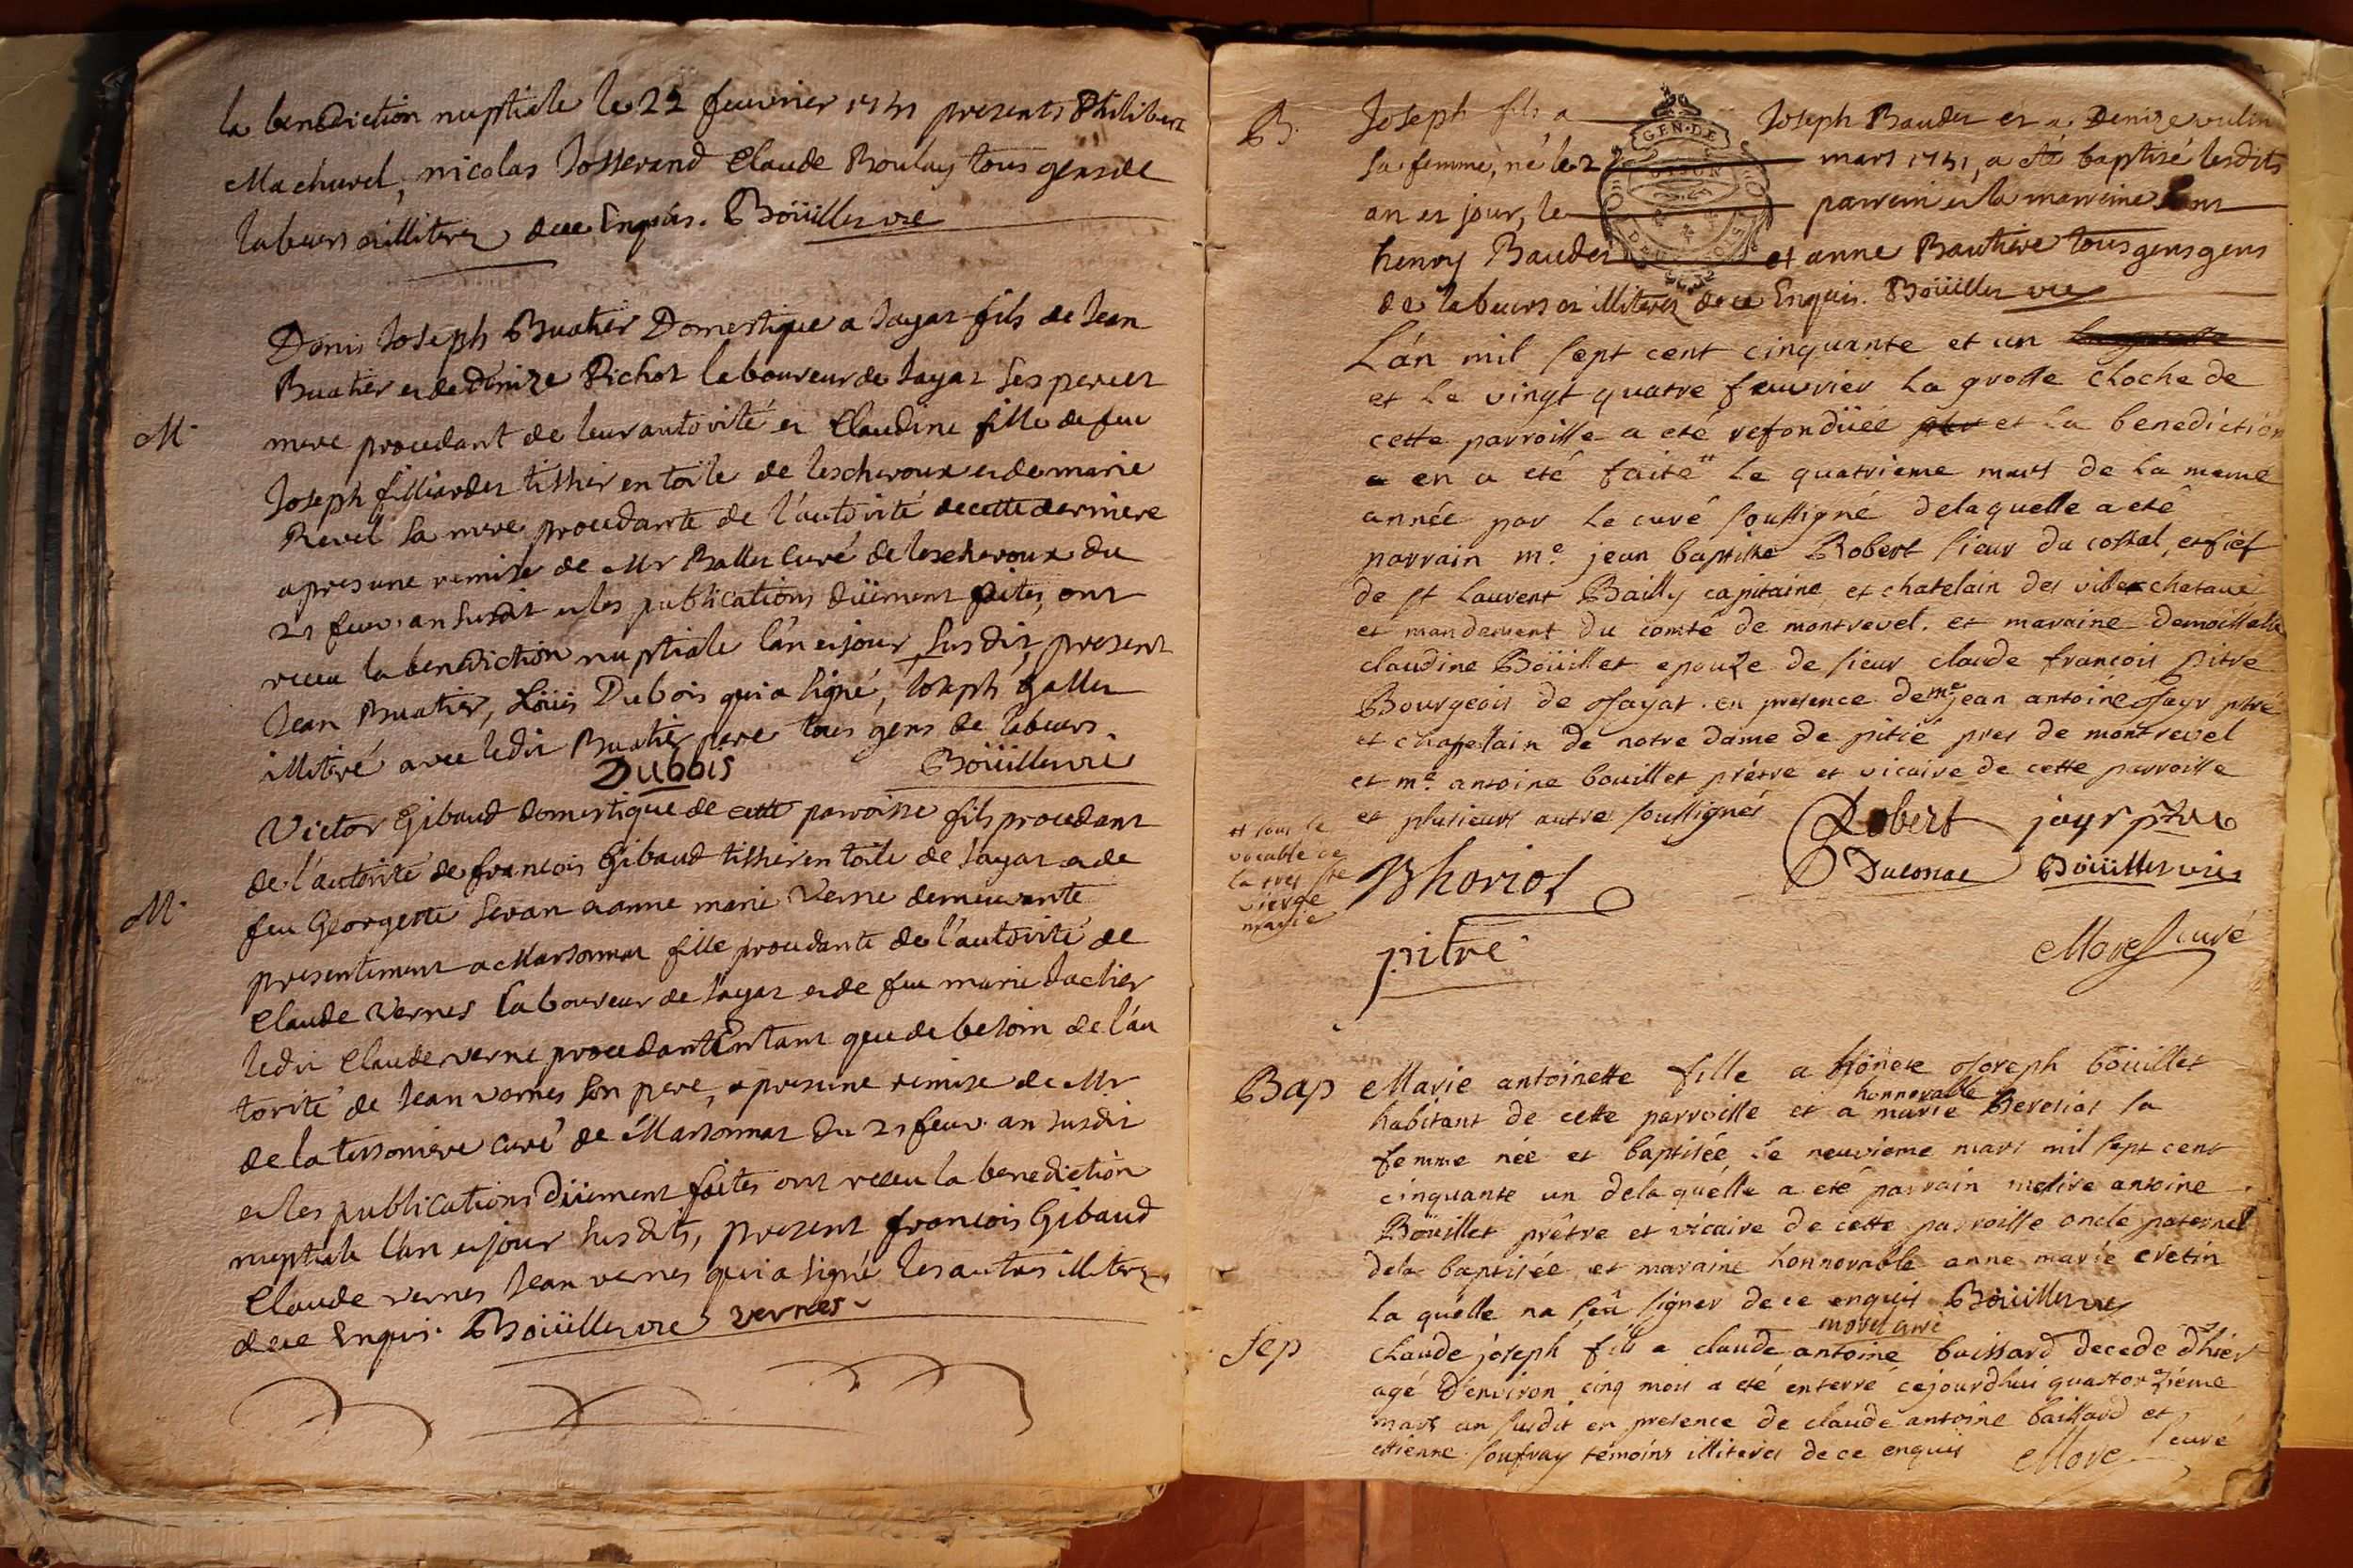 la benediction nuptiale le 22 feuvrier 1751 presents Philibert
Machurel, nicolas Josserand Claude Boulay tous gens de
labeurs et illiterez de ce Enquis. Boüillet vre
Denis Joseph Buatier Domestique a Jayat fils de Jean
Buatier et de denize Pichot laboureur de Jayat ses pere et
M. mere procedant de leur autorité et Claudine fille de feu
Joseph filliardet tissier en toile de lescheroux et de marie
Revel sa mere procedante de l'autorité de cette derniere
apres une remise de Mr Ballet Curé de lescheroux du
21 feuv. an susdit et les publications düement faites, ont
receu la benediction nuptiale l'an et jour susdit, present
Jean Buatier, Loüis Dubois qui a signé, Joseph galler
illiteré avec ledit Buatier pere tous gens de labeurs.
Dubois Boüillet vre
Victor Gibaud domestique de cette paroisse fils procedant
de l'autorité de francois Gibaud tissier en toile de Jayat et de
M. feu Georgette Sevan et anne marie Verne demeurante
presentement a Marsonnat fille procedante de l'autorité de
Claude Vernes laboureur de Jayat et de feu marie Jaclier
ledit Claude verne procedant Entant que de besoin de l'au
torité de Jean vernes son pere, apres une remise de Mr
de la tessoniere curé de Marsonnat du 21 feuv. an susdit
et les publications düement faites ont receu la benediction
nuptiale l'an et jour susdits, present francois Gibaud
Claude vernes Jean vernes qui a signé les autres illiterez
de ce Enquis. Boüillet vre vernes
B. Joseph fils a Joseph Baudet et a Denize vulin
sa femme, né le 2 mars 1751, a été baptisé lesdits
an et jour, le parrein et la marreine sont
henry Baudet et anne Bautiere tous gens gens
de labeurs et illiterez de ce Enquis. Boüillet vre
GEN. DE
DIJON
L'an mil sept cent cinquante et un
et le vingt quatre feuvrier la grosse cloche de
cette parroisse a eté refondüée et la benediction
en a eté faite " le quatrieme mars de la meme
année par le curé soussigné delaquelle a eté
parrain me. jean baptiste Robert sieur du costal, et fief
de st laurent Bailly capitaine et chatelain des villes chataue
et mandement du comté de montrevel. et maraine demoiselle
claudine Böüillet epouze de sieur claude francois pitre
Bourgeois de Jayat. en presence de me jean antoine Jayr ptre
et chapelain de notre dame de pitié pres de montrevel
et me. antoine bouillet prêtre et vicaire de cette parroisse
et plusieurs autre soussignés
et sous le
vocable de
la tres ste
vierge
marie
Robert jayr ptre
Bhoriol Ducostal Boüillet vre
pitre
Morel curé
Bap Marie antoinette fille a honete Joseph boüillet
habitant de cette parroisse et a honnorable marie Beresiat sa
femme née et baptisée le neuvieme mars mil sept cent
cinquante un delaquélle a eté parrain mesire antoine
Boüillet prêtre et vicaire de cette parroisse oncle paternel
dela baptisée et maraine honnorable anne marie cretin
la quélle na seû signer de ce enquis Boüillet vre
morel curé
Sep claude joseph fils a claude antoine buissard decede d'hier
agé d'environ cinq mois a eté enterré cejourdhui quatorzieme
mars an susdit en presence de claude antoine baissard et
etienne soufray témoins illiterés de ce enquis Morel curé